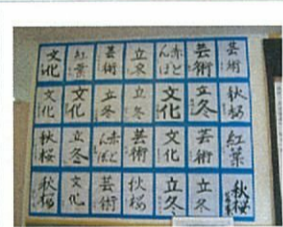 文化 紅葉 芸術 立冬 赤とんぼ 芸術 芸術
文化 文化 立冬 立冬 文化 立冬 秋桜
秋桜 立冬 赤とんぼ 芸術 文化 芸術 紅葉
秋桜 文化 芸術 秋桜 立冬 立冬 秋桜